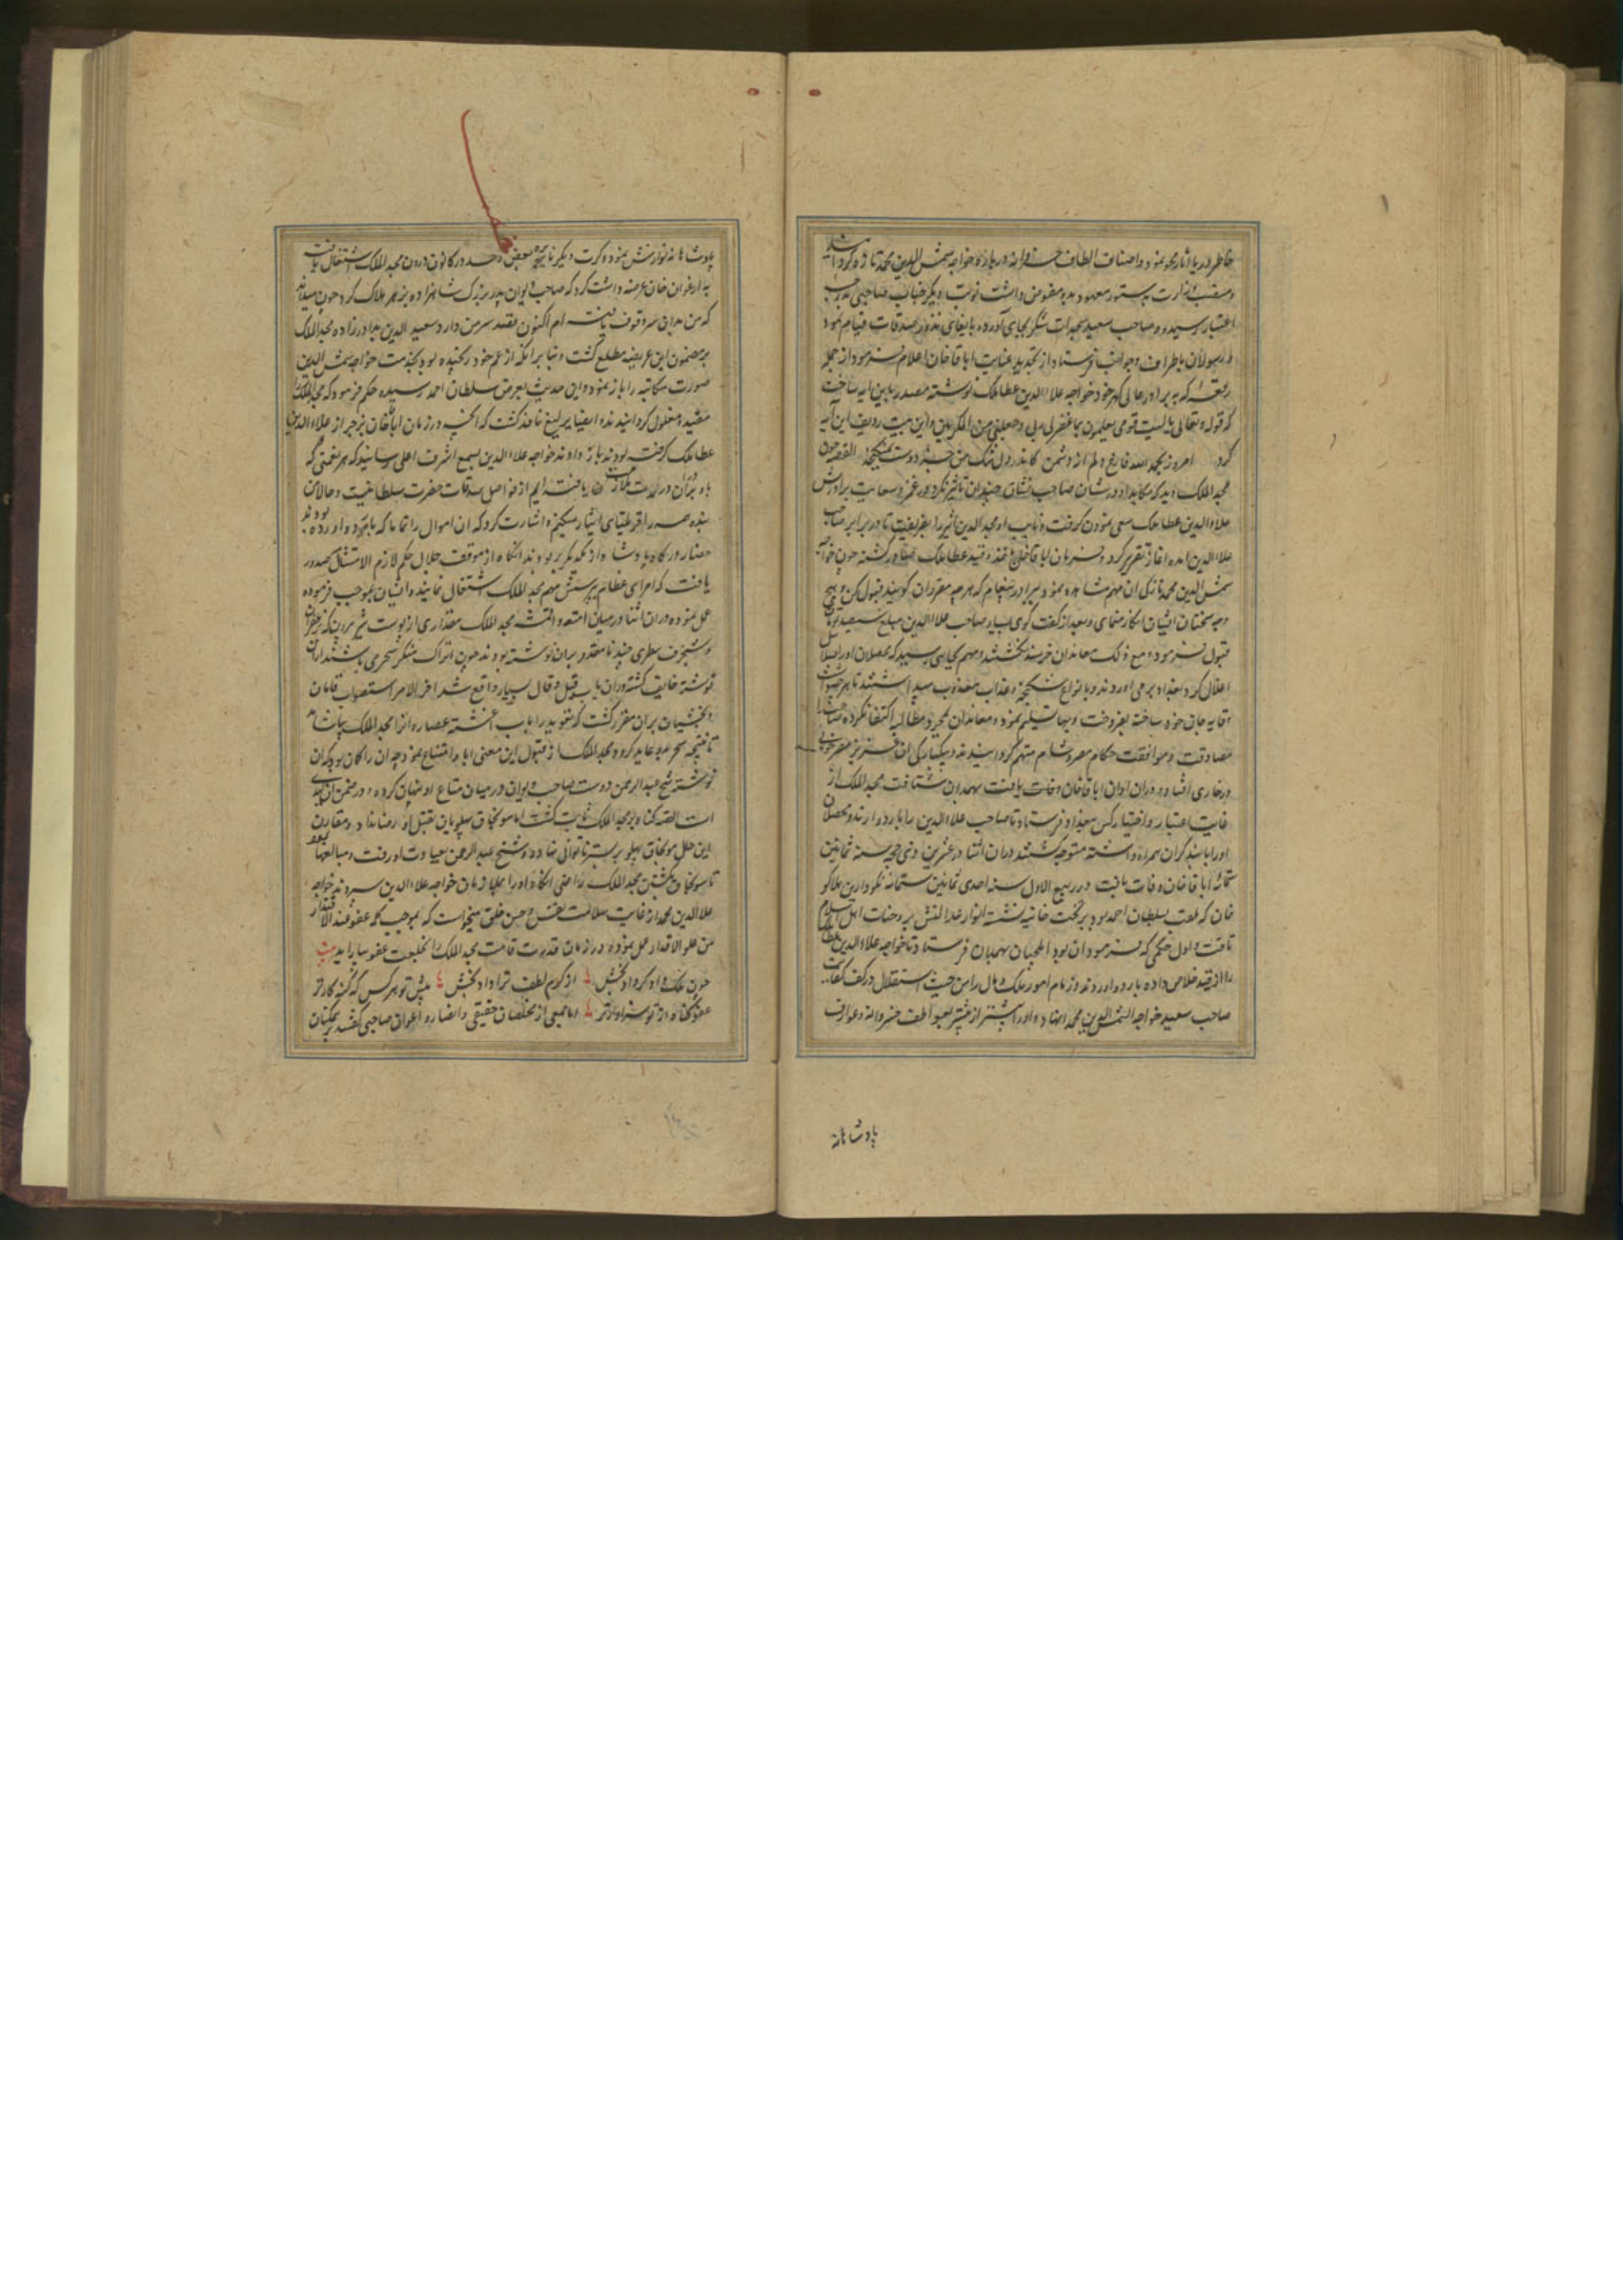 خاطر دریا اثار محو نمود و اصناف الطاف خسروانه درباره خواجه شمس الدین محمد تازه کردانید
و منصب وزارت بدستور معهود بدو مفوض داشت نوبت دیکر جناب صاحبی بدرجه
اعتبار رسیده و صاحب سعید سجدات شکر بجای آورده بایفای نذور و صدقات قیام نمود
و رسولان باطراف و جوانب فرستاد از تجدید عنایت اباقاخان اعلام فرمود از جمله
رقعه که به برادر عالی کهر خود خواجه علاء الدین عطاملک نوشته مصدر باین ایه ساخت
که قوله و تعالی یا لیت قومی یعلمون بما غفر لی ربی و جعلنی من المکرمین و این بیت ردیف این آیه
کرد امروز بحمد الله فارغ دلم از دشمن کاندر دل تنک من جز دوست نمیکنجد القصه چون
مجد الملک دید که مکاید او در شان صاحب نشان چندان تاثیر نکرد در غمز و سعایت برادرش
علاء الدین عطاملک سعی نمودن کرفت و نایب او مجد الدین اثیر را بفریفت تا در برابر صاحب
علاء الدین امده اغاز تقریر کرد و فرمان اباقاخان باخذ و قید عطاملک صادر کشته چون خواجه
شمس الدین محمد نازکی ان مهم مشاهده نمود ببرادر پیغام که هرچه مقرران کویند قبول کن و بهیچ
وجه سخنان ایشان انکار منمای و بعد از کفت کوی بسیار صاحب علاء الدین مبلغ سیصد تومان
قبول فرمود و مع ذلک معاندان خرسند نکشتند و مهم بجایی رسید که محصلان او را سلاسل
اغلال کرد بغداد برمی اوردند و بانواع شکنجه و عذاب معذب میداشتند تا هر چه داشت
وقایه جان خود ساخته بفروخت و بها تسلیم نمود و معاندان بمجرد مطالبه اکتفا نکرده صاحب را
مصادقت و موافقت حکام مصر و شام متهم کردانیدند و بیکبارکی ان عزیز مصر خوبی
در خاری افتاد و در ان اوان اباقاخان وفات یافت بهمدان شتافت مجد الملک از
غایت اعتبار و اختیار کس ببغداد فرستاد تا صاحب علاء الدین را باردو ارند و محصلان
او را با بند کران همراه داشته متوجه کشتند در ان اثنا در عشرین ذی حجه سنه ثمانین
ستمائه اباقاخان وفات یافت و در ربیع الاول سنه احدی ثمانین ستمائه نکودار بن هلاکو
خان که ملقب بسلطان احمد بود بر تخت خانیه نشسته انوار عدالتش بر وجنات اهل اسلام
تافت و اول حکمی که فرمود ان بود ایلچیان بهمدان فرستاد تا خواجه علاء الدین عطاملک
را از قید خلاصی داده باردو اوردند و زمام امور ملک و مال را من حیث استقلال در کف کفایت
صاحب سعید خواجه شمس الدین محمد نهاده و او را بیشتر از پیشتر بعواطف خسروانه و عوارف
پادشاهانه
پادشاهانه نوازش نمود و کرت دیکر نایره بغض و حسد در کانون درون مجد الملک اشتعال یافت
به ارغون خان عرضه داشت کرد که صاحب دیوان پدر بزرک شاهزاده بزهر هلاک کرد چون میداند
که من بدان سر وقوف یافته ام اکنون قصد سر من دارد سعید الدین برادر زاده مجد الملک
بر مضمون این عریضه مطلع کشت و بنا بر انکه از عم خود رنجیده بود بخدمت خواجه شمس الدین
صورت مکاتبه را باز نموده و این حدیث بعرض سلطان احمد رسیده حکم فرمود که مجد الملک را
مقید و مغلول کردانیدند و ایضا یرلیغ نافذ کشت که انچه در زمان اباقاخان بزجر از علاء الدین
عطاملک کرفته بودند باز دادند خواجه علاء الدین بسمع اشرف اعلی رسانید که هر نعمتی که
ما و برادران در مدت ملازمت یافته ایم از فواضل صدقات حضرت سلطانیست و حالا این
بنده همه را قربلتای ایثار میکنم و اشارت کرد که ان اموال را تماما که باردو اورده بودند
حضار درکاه پادشاه از یکدیکر بربودند انکاه از موقف جلال حکم لازم الامتثال صدور
یافت که امرای عظام بپرسش مهم مجد الملک اشتغال نمایند و ایشان بموجب فرموده
عمل نموده در ان اثنا در میان امتعه و اقمشه مجد الملک مقداری از پوست شیر بیرون که بزعفران
و شنجرف سطری چند نامقدور بران نوشته بودند چون اتراک منکر سحر می باشند از ان
نوشته خایف کشته در ان باب قیل و قال بسیار واقع شد اخر الامر استصواب قامان
و بخشیان بران مقرر کشت که تعویذ را باب اغشته عصاره انرا مجد الملک بیاشامد
تا نتیجه سحر بدو عاید کردد مجد الملک از قبول این معنی ابا و امتناع نمود چه ان را کان بود که ان
نوشته شیخ عبد الرحمن دوست صاحب دیوان در میان متاع او پنهان کرده و در ضمن ان بدی
است القصه کناه بر مجد الملک ثابت کشت اما سونجاق بهلو بقتل او رضا نداد و مقارن
این حال سونجاق پهلو بر بستر ناتوانی نهاده و شیخ عبد الرحمن بعیادت او رفت و مبالغها نمود
تا سونجاق بکشتن مجد الملک رضا داد انکاه او را بملازمان خواجه علاء الدین سپردند خواجه
علاء الدین محمد از غایت سلامت نفس و حسن خلق میخواست که بموجب کلمه عفو عند الاقتدار
من علو الاقدار عمل نموده در زمان قدرت قامت مجد الملک را بخلعت عفو بیاراید بیت
چون ملک و داد کرد داد بخش از کرم لطف ترا داد بخش پیش تو هر کس که کنه کارتر
عفو کناه از تو سزاوارتر اما جمعی از مخلصان حقیقی و انصار و اعوان صاحبی کفتند بر نیکان